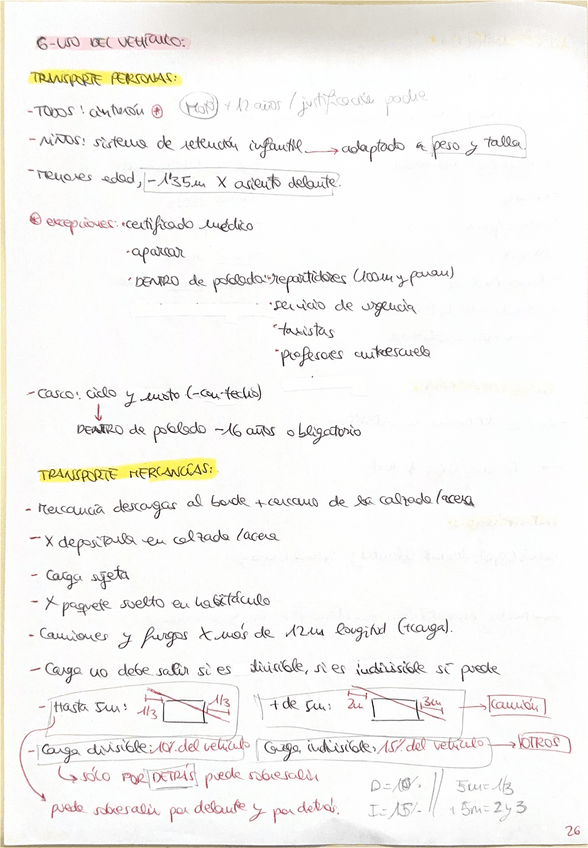 6-USO DEL VEHÍCULO:
TRANSPORTE PERSONAS:
-TODOS: cinturón * Moto +12 años / justificación padre
-NIÑOS: sistema de retención infantil → adaptado a peso y talla
-Menores edad, -1'35m X asiento delante.
* excepciones: ·certificado médico
·aparcar
·DENTRO de poblado: ·repartidores (100m y paran)
·servicio de urgencia
·taxistas
·profesores autoescuela
-Casco: ciclo y moto (-con techo)
↓
DENTRO de poblado -16 años obligatorio
TRANSPORTE MERCANCÍAS:
- Mercancía descargas al borde + cercano de la calzada/acera
- X depositarla en calzada/acera
- Carga sujeta
- X paquete suelto en habitáculo
- Camiones y furgos X más de 12m longitud (+carga).
- Carga no debe salir si es divisible, si es indivisible sí puede
- Hasta 5m: 1/3 1/3 + de 5m: 2m 3m → CAMIÓN
- Carga divisible: 10% del vehículo Carga indivisible, 15% del vehículo → OTROS
↳ SÓLO POR DETRÁS puede sobresalir
puede sobresalir por delante y por detrás.
D = 10% // 5m = 1/3
I = 15% + 5m = 2 y 3
26